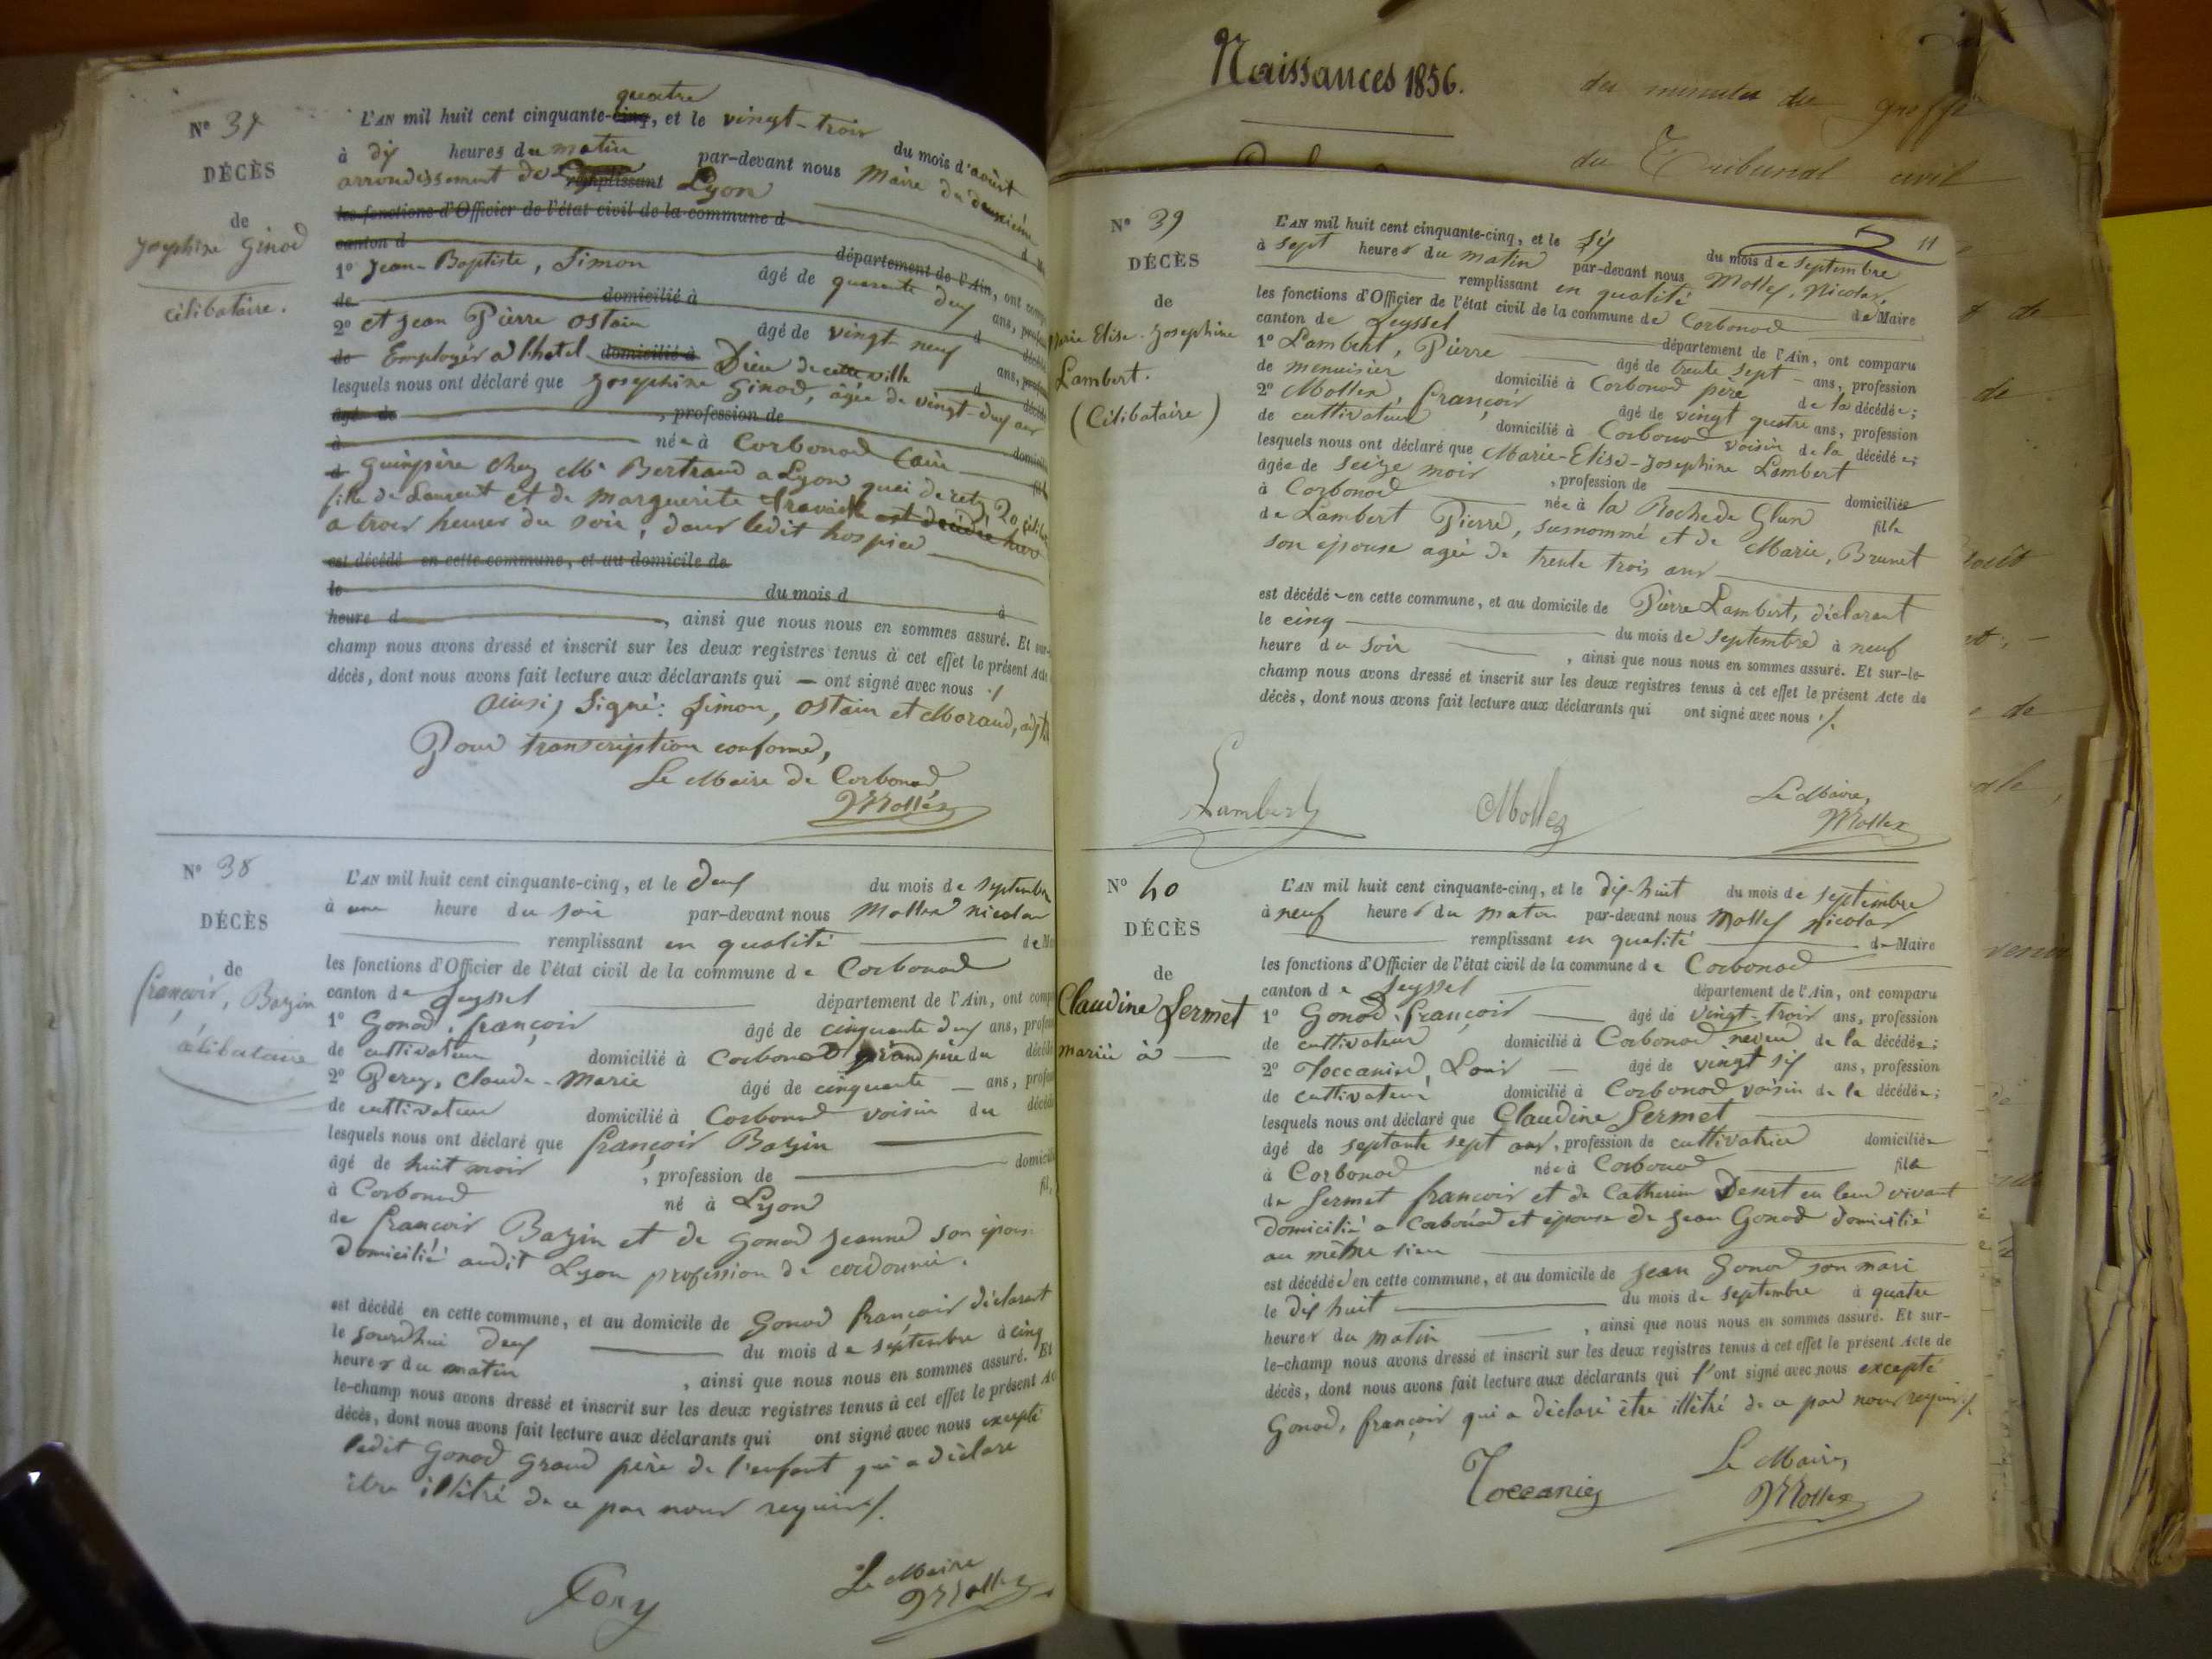 Nº 37
DÉCÈS
de
Josephine Ginod
célibataire.
quatre
L'AN mil huit cent cinquante-cinq, et le vingt-trois du mois d'août
à dix heures du matin par-devant nous Maire du deuxième
arrondissement de remplissant Lyon
les fonctions d'Officier de l'état civil de la commune d
canton d département de l'Ain, ont comp
1º Jean-Baptiste, Simon âgé de quarante deux ans, profes
de domicilié à d décédé
2º et Jean Pierre Ostain âgé de vingt neuf ans, profes
de Employés à l'hotel domicilié à Dieu de cette ville d décédé
lesquels nous ont déclaré que Josephine Ginod, âgée de vingt-deux ans
âgé de , profession de domicilié
à née à Corbonod (ain
d Guimpière chez Mr Bertrand a Lyon quai de retz 20, fil
fille de Laurent et de Marguerite Travail est décédée hier
a trois heures du soir, dans ledit hospice
est décédé en cette commune, et au domicile de
le du mois d à
heure d , ainsi que nous nous en sommes assuré. Et sur-
champ nous avons dressé et inscrit sur les deux registres tenus à cet effet le présent Acte
décès, dont nous avons fait lecture aux déclarants qui — ont signé avec nous ./
Ainsi, Signé: Simon, Ostain et Morand, adjt
Pour transcription conforme,
Le Maire de Corbonod
Mollex
Nº 38
DÉCÈS
de
françois, Bazin
célibataire
L'AN mil huit cent cinquante-cinq, et le deux du mois de septembre
à une heure du soir par-devant nous Mollex Nicolas
remplissant en qualité de Ma
les fonctions d'Officier de l'état civil de la commune de Corbonod
canton de Seyssel département de l'Ain, ont comp
1º Gonod, françois âgé de cinquante deux ans, profess
de cultivateur domicilié à Corbonod grand père du décédé
2º Perey, Claude-Marie âgé de cinquante — ans, profess
de cultivateur domicilié à Corbonod voisin du décédé
lesquels nous ont déclaré que françois Bazin
âgé de huit mois , profession de domicilié
à Corbonod né à Lyon fil
de françois Bazin et de Gonod Jeanne son épouse
domicilié audit Lyon profession de cordonnier.
est décédé en cette commune, et au domicile de Gonod françois déclarant
le jourdhui deux du mois de septembre à cinq
heures du matin , ainsi que nous nous en sommes assuré. Et
le-champ nous avons dressé et inscrit sur les deux registres tenus à cet effet le présent Ac
décès, dont nous avons fait lecture aux déclarants qui ont signé avec nous excepté
ledit Gonod Grand père de l'enfant qui a déclaré
être illétré de ce par nous requis ./.
Le Maire
Mollex
Naissances 1856.
des minutes du greffe
du Tribunal civil
11
Nº 39
DÉCÈS
de
Marie Elise-Josephine
Lambert.
(Célibataire)
L'AN mil huit cent cinquante-cinq, et le six du mois de septembre
à sept heures du matin par-devant nous Mollex, Nicolas,
remplissant en qualité de Maire
les fonctions d'Officier de l'état civil de la commune de Corbonod
canton de Seyssel département de l'Ain, ont comparu
1º Lambert, Pierre âgé de trente sept — ans, profession
de menuisier domicilié à Corbonod père de la décédée;
2º Mollex, françois âgé de vingt quatre ans, profession
de cultivateur domicilié à Corbonod voisin de la décédée;
lesquels nous ont déclaré que Marie-Elise-Josephine Lambert
âgée de seize mois , profession de domiciliée
à Corbonod née à la Roche de Glun fille
de Lambert Pierre, susnommé et de Marie, Brunet
son épouse agée de trente trois ans
est décédé en cette commune, et au domicile de Pierre Lambert, déclarant
le cinq du mois de septembre à neuf
heure du soir , ainsi que nous nous en sommes assuré. Et sur-le-
champ nous avons dressé et inscrit sur les deux registres tenus à cet effet le présent Acte de
décès, dont nous avons fait lecture aux déclarants qui ont signé avec nous ./.
Lambert Mollex Le Maire,
Mollex
Nº 40
DÉCÈS
de
Claudine Sermet
mariée à —
L'AN mil huit cent cinquante-cinq, et le dix-huit du mois de septembre
à neuf heures du matin par-devant nous Mollex Nicolas
remplissant en qualité de Maire
les fonctions d'Officier de l'état civil de la commune de Corbonod
canton de Seyssel département de l'Ain, ont comparu
1º Gonod, françois âgé de vingt-trois ans, profession
de cultivateur domicilié à Corbonod neveu de la décédée;
2º Toccanier, Louis — âgé de vingt six ans, profession
de cultivateur domicilié à Corbonod voisin de la décédée;
lesquels nous ont déclaré que Claudine Sermet
âgé de septante sept ans, profession de cultivatrice domiciliée
à Corbonod née à Corbonod fille
de Sermet françois et de Catherine Desert en leur vivant
domicilié a Corbonod et épouse de Jean Gonod domicilié
au même lieu
est décédée en cette commune, et au domicile de Jean Gonod son mari
le dix huit du mois de septembre à quatre
heures du matin , ainsi que nous nous en sommes assuré. Et sur-
le-champ nous avons dressé et inscrit sur les deux registres tenus à cet effet le présent Acte de
décès, dont nous avons fait lecture aux déclarants qui l'ont signé avec nous excepté
Gonod, françois qui a déclaré être illétré de ce par nous requis ./.
Toccanier Le Maire,
Mollex